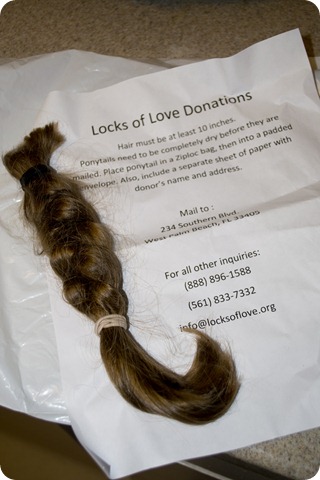 Locks of Love Donations
Hair must be at least 10 inches.
Ponytails need to be completely dry before they are
mailed. Place ponytail in a Ziploc bag, then into a padded
envelope. Also, include a separate sheet of paper with
donor's name and address.
Mail to :
234 Southern Blvd.
West Palm Beach, FL 33405
For all other inquiries:
(888) 896-1588
(561) 833-7332
info@locksoflove.org